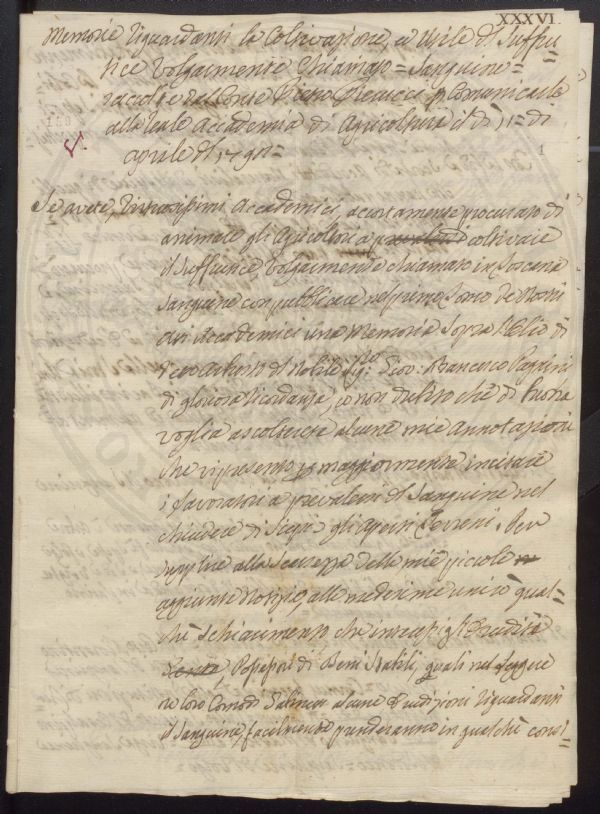 XXXVI.
Memorie riguardanti la Coltivazione, ed Utile di Suffru-
tice volgarmente Chiamato = Sanguine =
raccolte dal Conte Pietro e Comunicate
alla Reale Accademia di Agricoltura il dì di
aprile del
1
Se avete, Virtuosissimi Accademici, accortamente procurato di
animare gli Agricoltori a coltivare
il Suffrutice volgarmente chiamato in Toscana
Sanguine con pubblicare nel primo Tomo de Nostri
Atti Accademici una Memoria Sopra l'Olio di
detto Arbusto del Nobile Sig:re Giov: Francesco Pagnini
di gloriosa Ricordanza, io non dubito che di buona
voglia ascolterete alcune mie annotazioni
che vi presento p maggiormente incitare
i lavoratori a prevalersi del Sanguine nel
chiudere di Siepi gli aperti Terreni. Per
supplire alla Scarsezza delle mie piccole
aggiunte Notizie, alle medesime unirò qual=
che Schiarimento che interessi gl'Eruditi
Possessori di Beni Stabili, quali nel leggere
ne loro Comodi alcune Erudizioni riguardanti
il Sanguine, facilmente prenderanno in qualche consi=